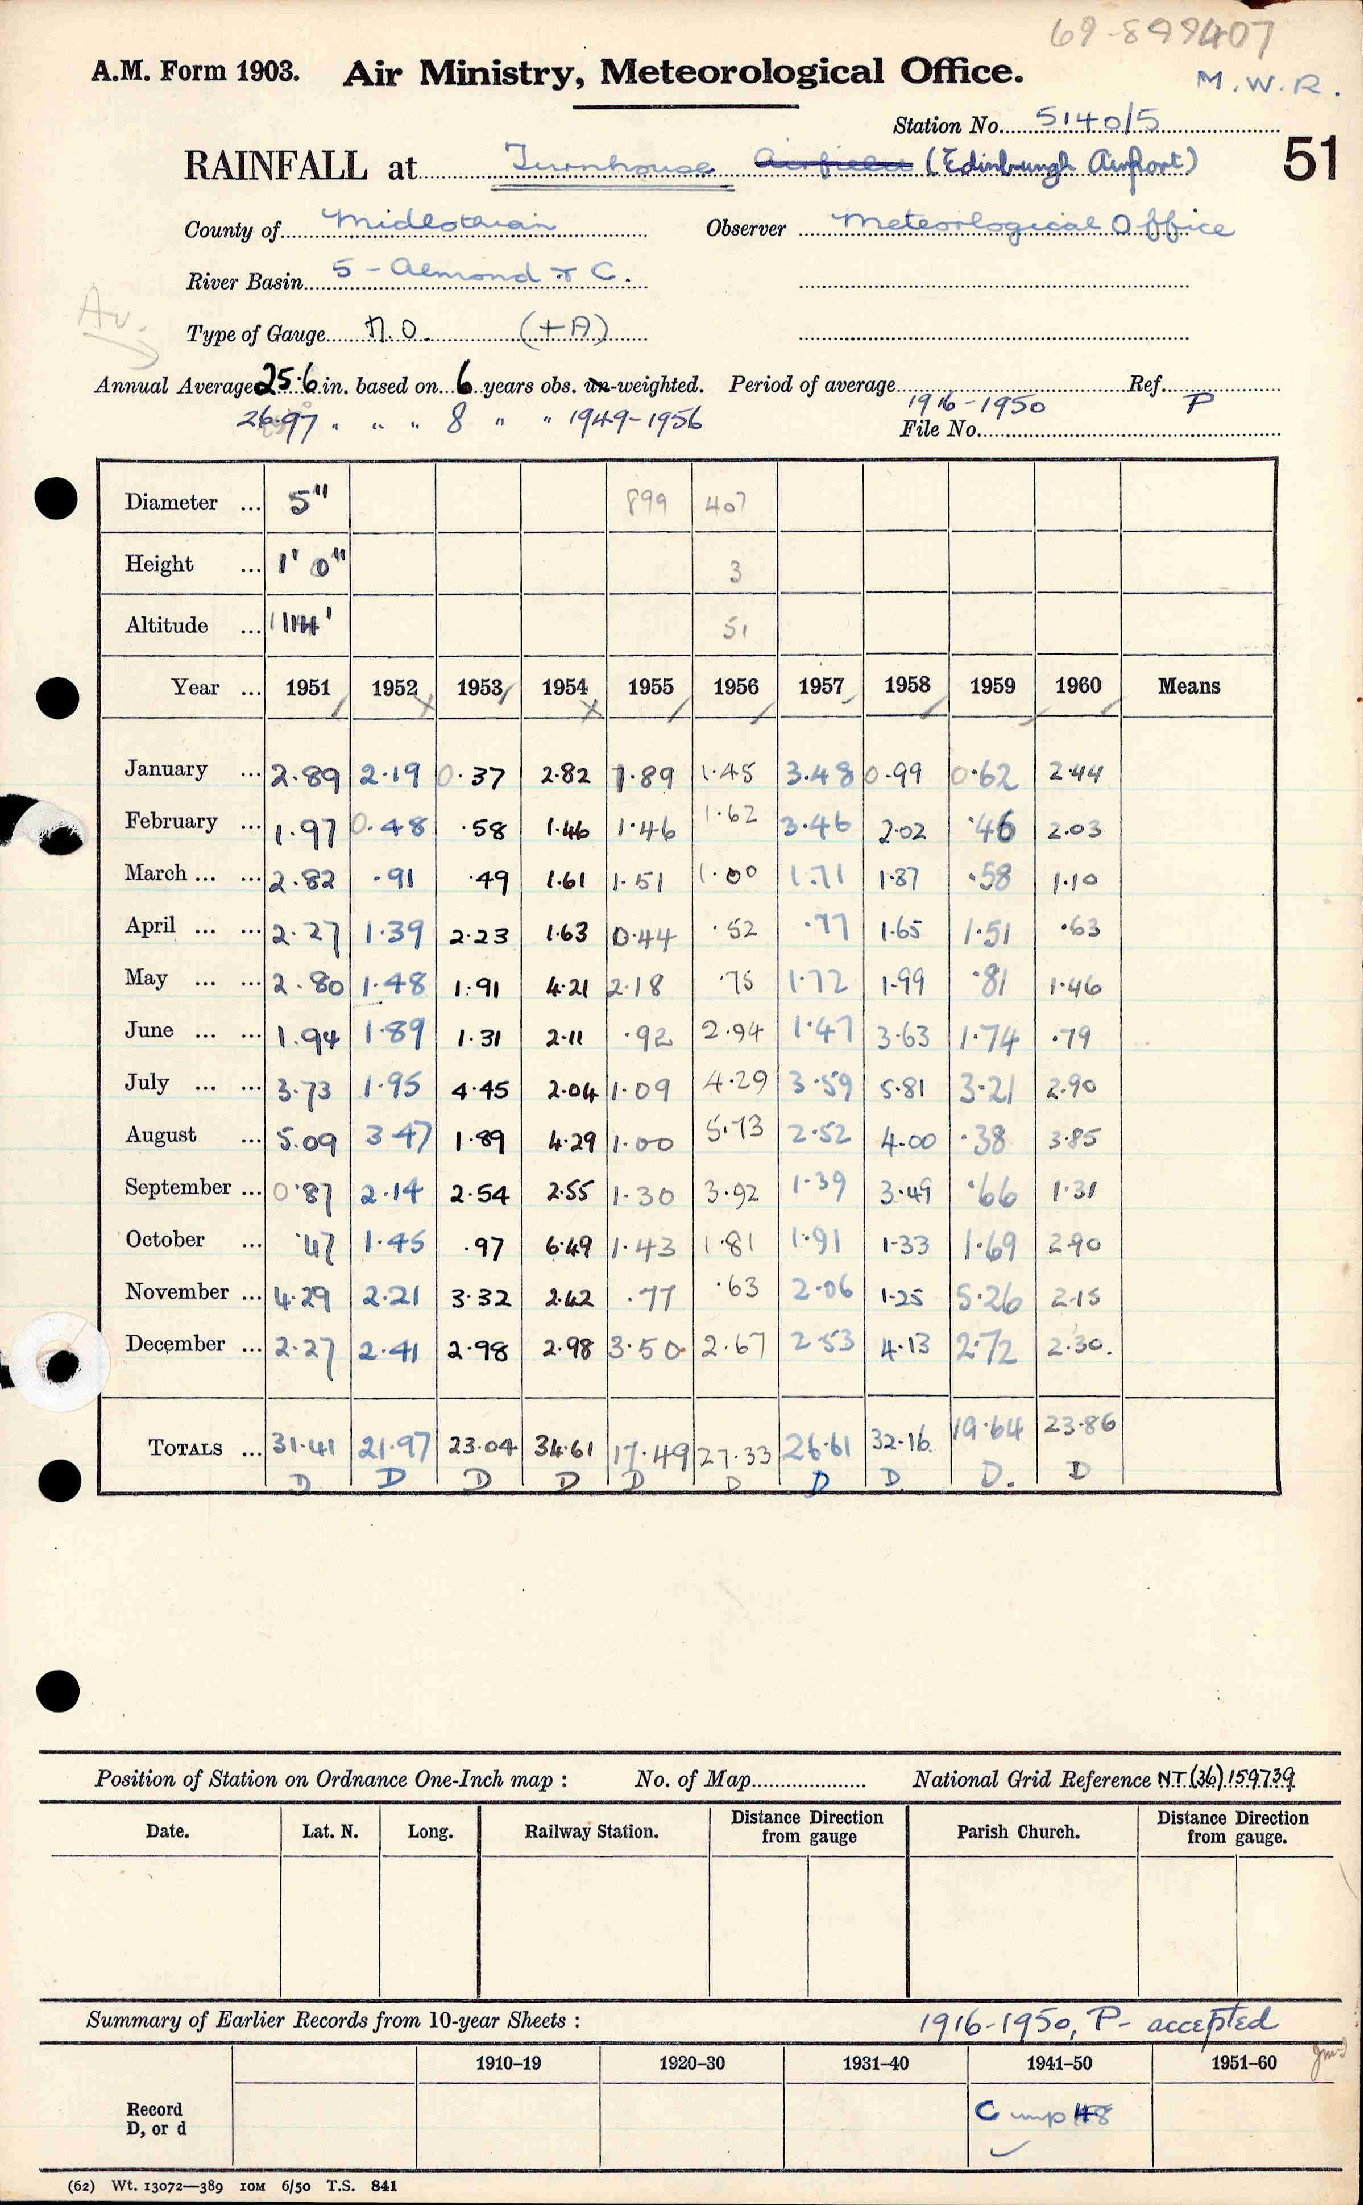 69-899407
A.M. Form 1903. Air Ministry, Meteorological Office. M.W.R.
Station No. 5140/5
RAINFALL at Turnhouse Airfield (Edinburgh Airport) 51
County of Midlothian Observer Meteorological Office
River Basin 5 - Almond & C.
Av.
Type of Gauge M.O. (+A)
Annual Average 25.6 in. based on 6 years obs. un-weighted. Period of average 1916-1950 Ref. P
26.97 " " " 8 " " 1949-1956 File No.
Diameter ... 5" 899 407
Height ... 1' 0" 3
Altitude ... 114' 51
Year ... 1951 1952 1953 1954 1955 1956 1957 1958 1959 1960 Means
January ... 2.89 2.19 0.37 2.82 1.89 1.45 3.48 0.99 0.62 2.44
February ... 1.97 0.48 .58 1.46 1.46 1.62 3.46 2.02 .46 2.03
March ... ... 2.82 .91 .49 1.61 1.51 1.00 1.71 1.87 .58 1.10
April ... ... 2.27 1.39 2.23 1.63 0.44 .52 .77 1.65 1.51 .63
May ... ... 2.80 1.48 1.91 4.21 2.18 .75 1.72 1.99 .81 1.46
June ... ... 1.94 1.89 1.31 2.11 .92 2.94 1.47 3.63 1.74 .79
July ... ... 3.73 1.95 4.45 2.04 1.09 4.29 3.59 5.81 3.21 2.90
August ... 5.09 3.47 1.89 4.29 1.00 5.73 2.52 4.00 .38 3.85
September ... 0.87 2.14 2.54 2.55 1.30 3.92 1.39 3.49 .66 1.31
October ... .47 1.45 .97 6.49 1.43 1.81 1.91 1.33 1.69 2.90
November ... 4.29 2.21 3.32 2.42 .77 .63 2.06 1.25 5.26 2.15
December ... 2.27 2.41 2.98 2.98 3.50 2.67 2.53 4.13 2.72 2.30.
TOTALS ... 31.41 21.97 23.04 34.61 17.49 27.33 26.61 32.16 19.64 23.86
D D D D D D D D D. D
Position of Station on Ordnance One-Inch map : No. of Map National Grid Reference NT (36) 159739
Date. Lat. N. Long. Railway Station. Distance Direction from gauge Parish Church. Distance Direction from gauge.
Summary of Earlier Records from 10-year Sheets : 1916-1950, P- accepted
1910-19 1920-30 1931-40 1941-50 1951-60
Record D, or d C
(62) Wt. 13072-389 10M 6/50 T.S. 841